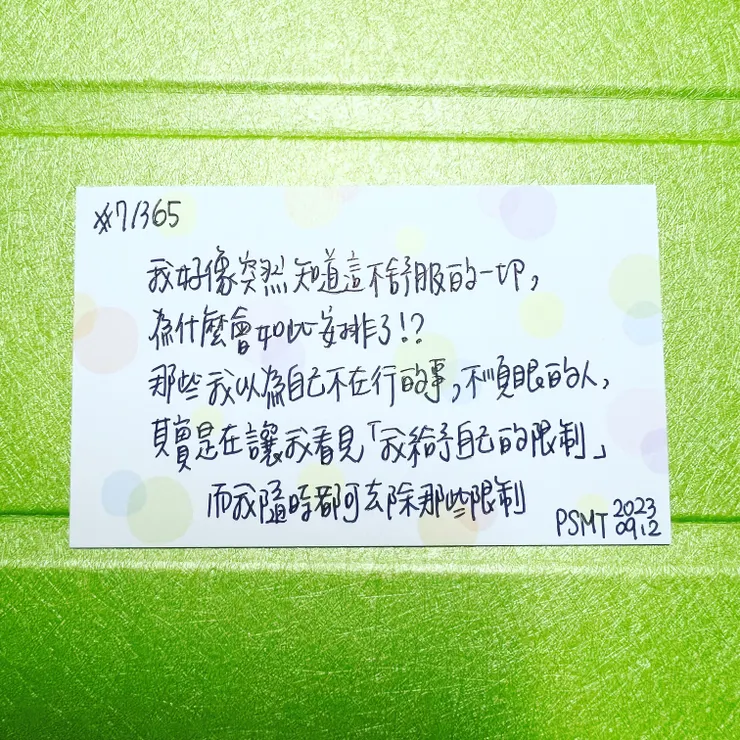 ※71365
我好像突然知道這不舒服的一切,
為什麼會如此安排了!?
那些我以為自己不在行的事,不順眼的人,
其實是在讓我看見「我給予自己的限制」
而我隨時都可去除那些限制
PSMT 2023
0912